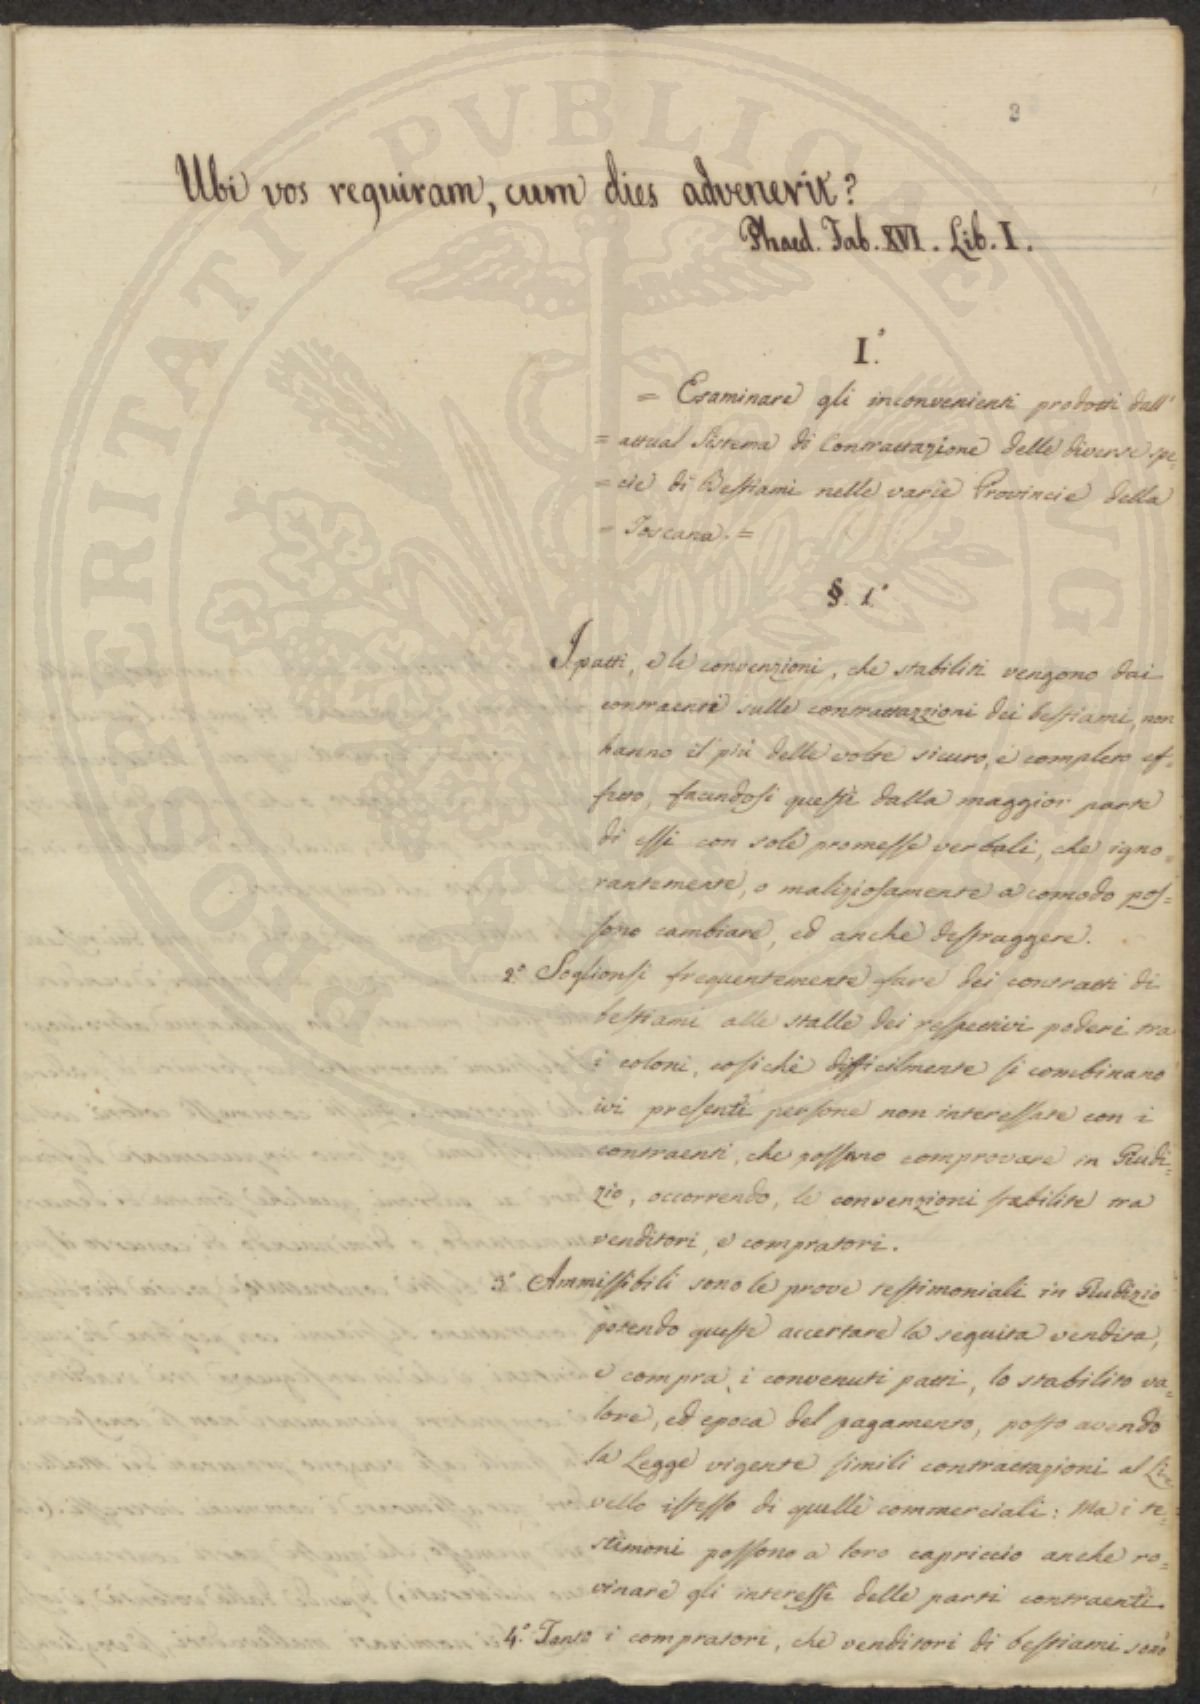 2
Ubi vos requiram, cum dies advenerit?
Phaed. Fab. XVI. Lib. I.
I.°
= Esaminare gli inconvenienti prodotti dall'
= attual Sistema di Contrattazione delle diverse spe-
= cie di Bestiami nelle varie Provincie della
= Toscana. =
§. 1.°
I patti, e le convenzioni, che stabiliti vengono dai
contraenti sulle contrattazzioni dei bestiami, non
hanno il più delle volte sicuro, e completo ef-
fetto, facendosi queste dalla maggior parte
di essi con sole promesse verbali, che igno-
rantemente, o maliziosamente a comodo pos-
sono cambiare, ed anche destraggere.
2.° Soglionsi frequentemente fare dei contratti di
bestiami alle stalle dei respettivi poderi tra
i coloni, cosichè difficilmente si combinano
ivi presenti persone non interessate con i
contraenti, che possano comprovare in Giudi-
zio, occorrendo, le convenzioni stabilite tra
venditori, e compratori.
3.° Ammissibili sono le prove testimoniali in Giudizio
potendo queste accertare la seguita vendita,
e compra, i convenuti patti, lo stabilito va-
lore, ed epoca del pagamento, posto avendo
la Legge vigente simili contrattazioni al Li-
vello istesso di quelle commerciali: Ma i te-
stimoni possono a loro capriccio anche ro-
vinare gli interessi delle parti contraenti.
4.° Tanto i compratori, che venditori di bestiami sono
PROSPERITATI PVBLICAE AVGENDAE